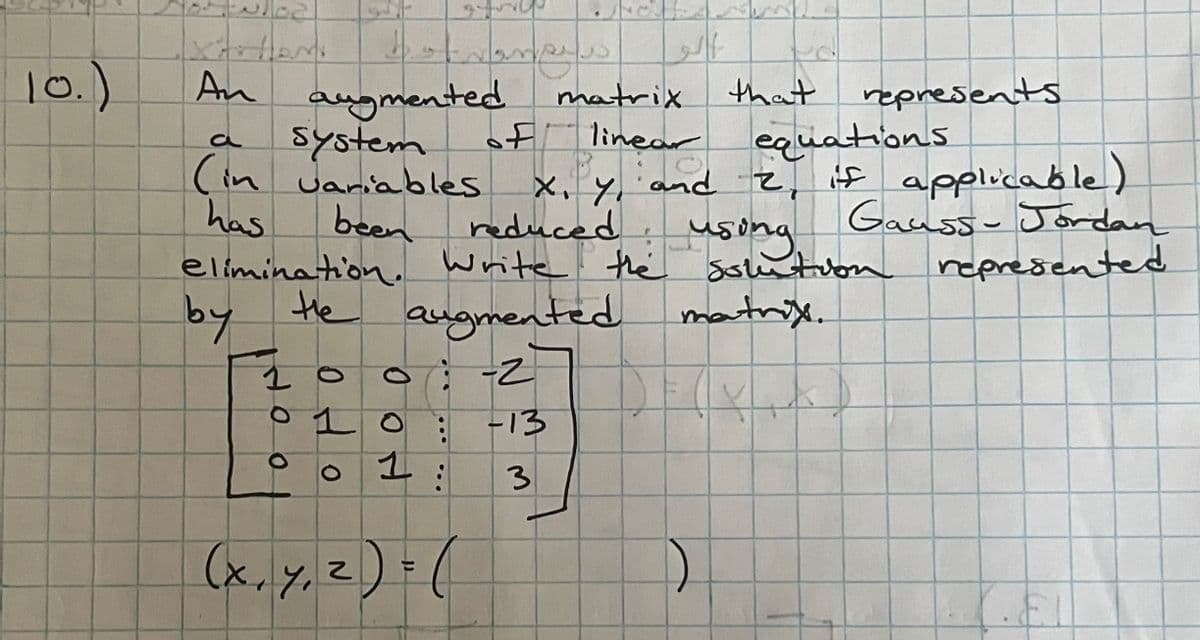 10.) An augmented matrix that represents
a system of linear equations
(in variables x, y, and z, if applicable)
has been reduced using Gauss-Jordan
elimination. Write the solution represented
by the augmented matrix.
1 0 0 ⋮ -2
0 1 0 ⋮ -13
0 0 1 ⋮ 3
(x, y, z) = ( )